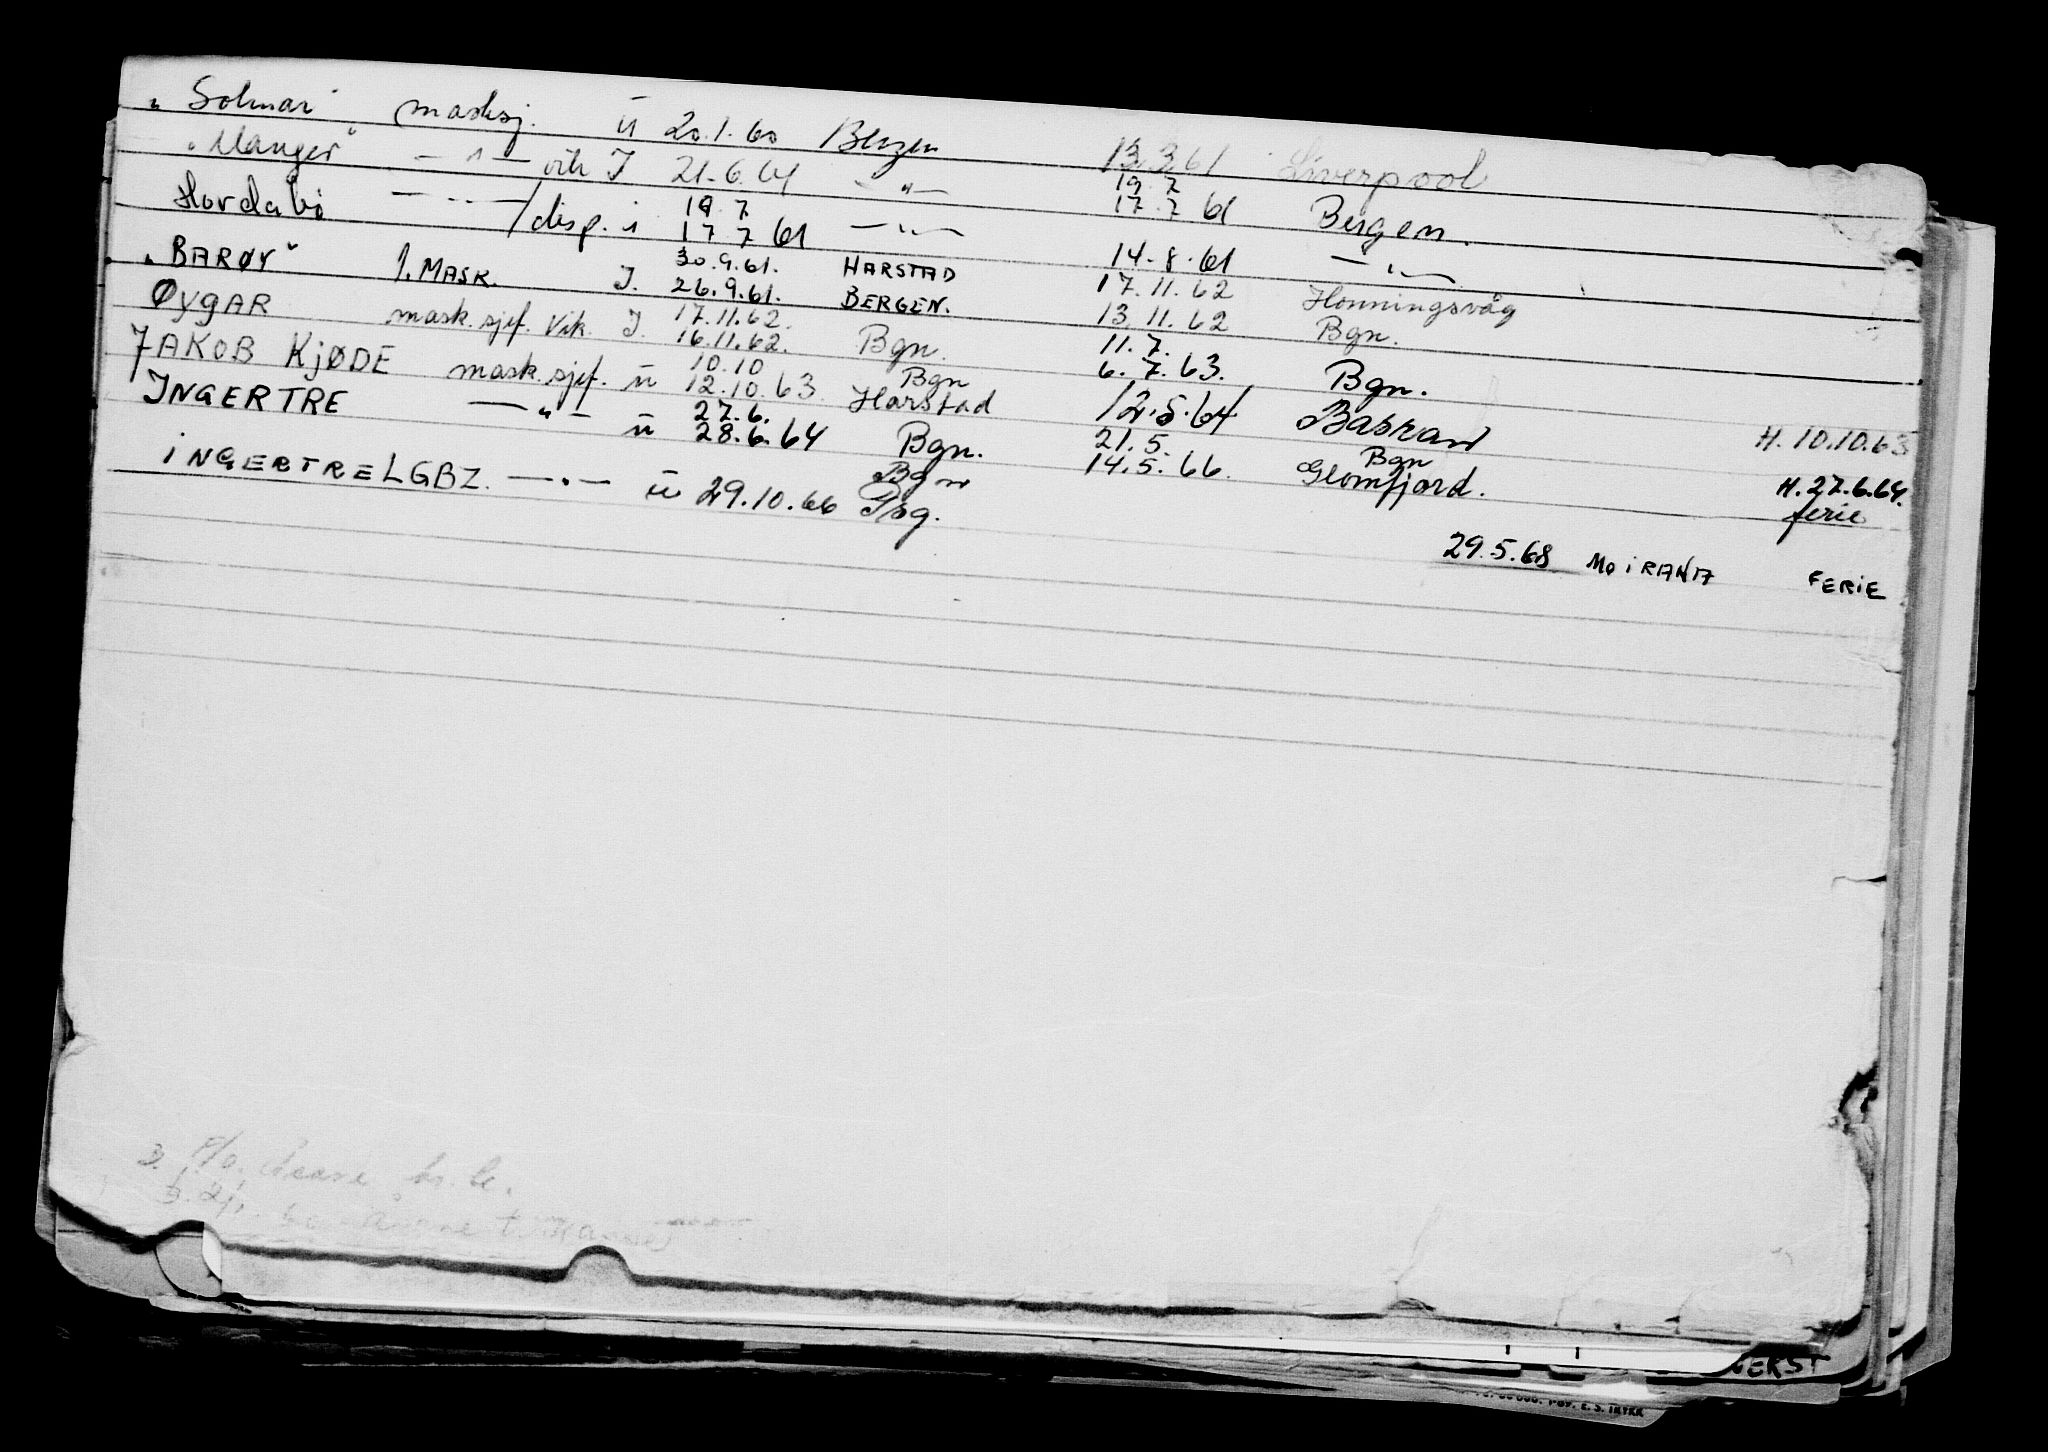 „ Solmar" masksj. ü 20.1.60 Bergen 13.3.61 Liverpool
„Manger" — " — vik I 21.6.61 — " — 19.7 17.7 61 Bergen.
Hordabö — " — /disp. i 19.7 17.7 61 — " — 14.8.61 — " —
„BARØY" 1. MASK. I. 30.9.61. 26.9.61. HARSTAD BERGEN. 17.11.62 13.11.62 Honningsvåg Bgn.
ØYGAR mask.sjef. Vik. I. 17.11.62. 16.11.62. Bgn. 11.7. 6.7.63. Bgn.
JAKOB KJØDE mask.sjef. ü 10.10 12.10.63 Bgn Harstad 12.5.64 Basrah H. 10.10.63
INGERTRE — " — ü 27.6. 28.6.64 Bgn. 21.5. 14.5.66. Bgn Glomfjord. H. 27.6.64. ferie
INGERTRE LGBZ. — " — ü 29.10.66 Bgn Psg. 29.5.68 MO i RANA FERIE